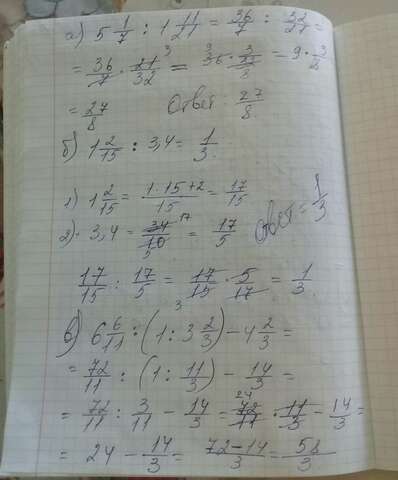 а) 5 1/7 : 1 11/21 = 36/7 : 32/21 =
= 36/7 · 21/32 = 36 · 3/32 = 9 · 3/8
= 27/8 Ответ: 27/8.
б) 1 2/15 : 3,4 = 1/3.
1) 1 2/15 = 1·15+2/15 = 17/15
2) 3,4 = 34/10 = 17/5 Ответ = 1/3
17/15 : 17/5 = 17/15 · 5/17 = 1/3
в) 6 6/11 : (1 : 3 2/3) - 4 2/3 =
= 72/11 : (1 : 11/3) - 14/3 =
= 72/11 : 3/11 - 14/3 = 72/11 · 11/3 - 14/3 =
= 24 - 14/3 = 72-14/3 = 58/3